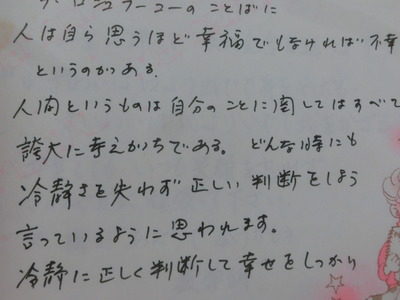 ラ・ロシュフーコーのことばに
人は自ら思うほど幸福でもなければ不幸
というのがある.
人間というものは自分のことに関してはすべて
誇大に考えがちである。どんな時にも
冷静さを失わず正しい判断をしよう
言っているように思われます。
冷静に正しく判断して幸せをしっかり